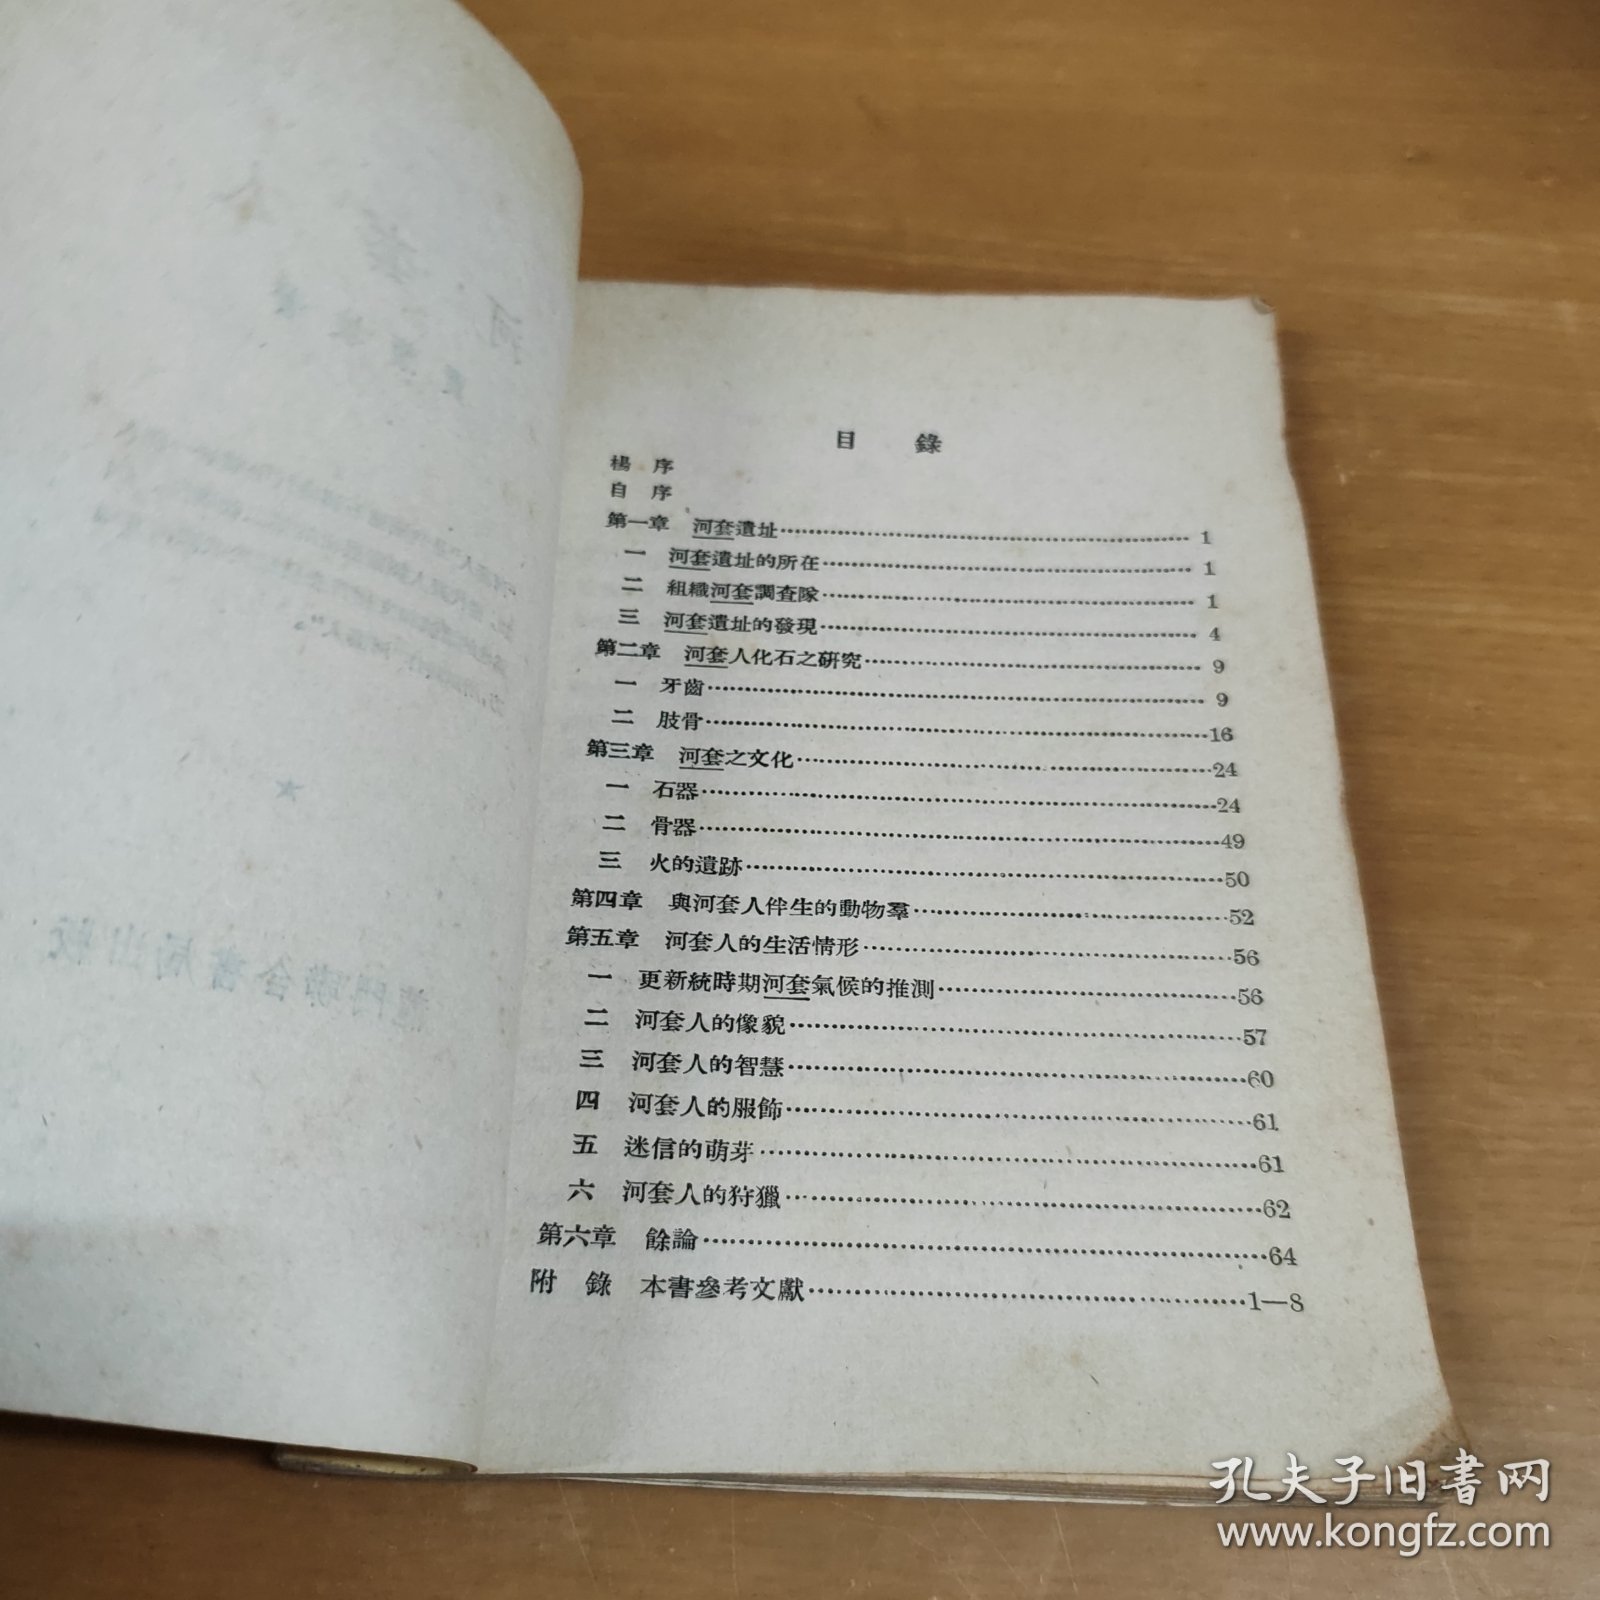 目 錄
楊 序
自 序
第一章 河套遺址 1
一 河套遺址的所在 1
二 組織河套調查隊 1
三 河套遺址的發現 4
第二章 河套人化石之研究 9
一 牙齒 9
二 肢骨 16
第三章 河套之文化 24
一 石器 24
二 骨器 49
三 火的遺跡 50
第四章 與河套人伴生的動物羣 52
第五章 河套人的生活情形 56
一 更新統時期河套氣候的推測 56
二 河套人的像貌 57
三 河套人的智慧 60
四 河套人的服飾 61
五 迷信的萌芽 61
六 河套人的狩獵 62
第六章 餘論 64
附 錄 本書參考文獻 1—8
孔夫子旧書网
www.kongfz.com